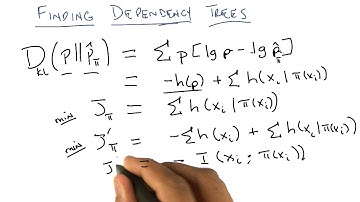 FINDING DEPENDENCY TREES
D_KL(p||p̂_π) = Σ p[lg p - lg p̂_π]
= -h(p) + Σ h(x_i|π(x_i))
min J_π = Σ h(x_i|π(x_i))
min J'_π = -Σ h(x_i) + Σ h(x_i|π(x_i))
J = - I(x_i; π(x_i))